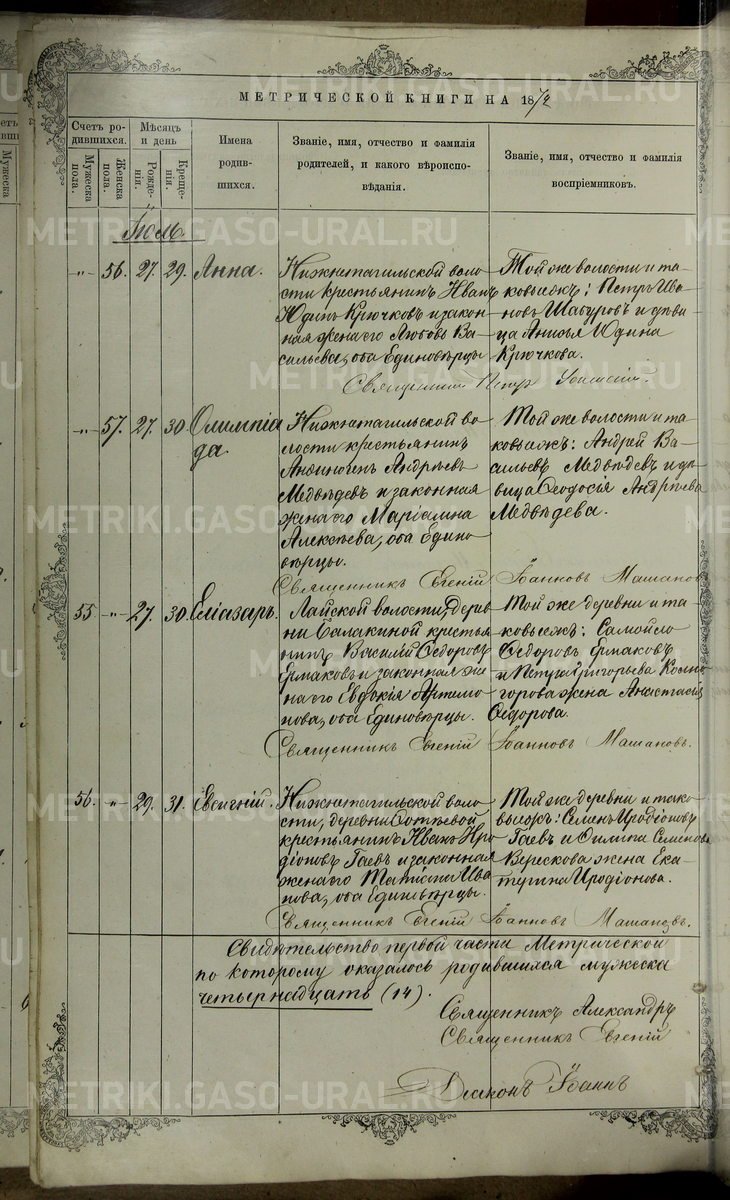 МЕТРИЧЕСКОЙ КНИГИ НА 1872
Счетъ ро-
дившихся.
Мужеска
пола.
Женска
пола.
Мѣсяцъ
и день
Рожде-
нія.
Креще-
нія.
Имена
родив-
шихся.
Званіе, имя, отчество и фамилія
родителей, и какого вѣроиспо-
вѣданія.
Званіе, имя, отчество и фамилія
воспріемниковъ.
Іюль
56. 27. 29. Анна.
Нижнетагильской воло-
сти крестьянинъ Иванъ
Юдинъ Крючковъ и закон-
ная жена его Любовь Ва-
сильева, оба Единовѣрцы
Той же волости и та-
ковыежъ: Петръ Ива-
новъ Шатуровъ и дѣви-
ца Анисья Юдина
Крючкова.
Священникъ Петръ
57. 27. 30. Олимпіа-
да.
Нижнетагильской во-
лости крестьянинъ
Анѳиногенъ Андреевъ
Медвѣдевъ и законная
жена его Маріамна
Алексѣева, оба Едино-
вѣрцы.
Той же волости и та-
ковыежъ: Андрей Ва-
сильевъ Медвѣдевъ и дѣ-
вица Ѳеодосія Андреева
Медвѣдева.
Священникъ Евгеній Іоанновъ Машановъ
55. 27. 30. Еліазаръ.
Лайской волости, дерев-
ни Балакиной крестья-
нинъ Василій Ѳедоровъ
Ермаковъ и законная же-
на его Евдокія Артемо-
нова, оба Единовѣрцы.
Той же деревни и та-
ковыежъ: Самойло
Ѳедоровъ Ермаковъ
и Петра Григорьева Колмо-
горова жена Анастасія
Ѳедорова.
Священникъ Евгеній Іоанновъ Машановъ.
56. 29. 31. Евсигній.
Нижнетагильской воло-
сти, деревни
крестьянинъ Иванъ Иро-
діоновъ Гаевъ и законная
жена его Татіана Ива-
нова, оба Единовѣрцы.
Той же деревни и тако-
выежъ: Семенъ Иродіоновъ
Гаевъ и Филипа Семенова
Верескова жена Ека-
терина Иродіонова.
Священникъ Евгеній Іоанновъ Машановъ.
Свидѣтельство первой части Метрической
по которому оказалось родившихся мужеска
четырнадцать (14).
Священникъ Александръ
Священникъ Евгеній
Діаконъ Іоаннъ
METRIKI.GASO-URAL.RU